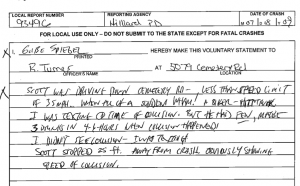 LOCAL REPORT NUMBER REPORTING AGENCY DATE OF CRASH
93496 Hilliard PD
FOR LOCAL USE ONLY – DO NOT SUBMIT TO THE STATE EXCEPT FOR FATAL CRASHES
I, GABE SPIEGEL HEREBY MAKE THIS VOLUNTARY STATEMENT TO
PRINTED
R. Turner AT 5079 Cemetery Rd
OFFICER'S NAME LOCATION
SCOTT WAS DRIVING DOWN CEMETERY RD - LESS THAN SPEED LIMIT
OF 35 MPH. WHEN ALL OF A SUDDEN WHAM! A BIKER
I WAS TEXTING @ TIME OF COLLISION. BUT HE HAD FEW, MAYBE
3 DRINKS IN 4-5 HOURS WHEN COLLISION HAPPENED!
I DIDN'T SEE COLLISION -
SCOTT STOPPED 25 ft. AWAY FROM CRASH, OBVIOUSLY SHOWING
SPEED OF COLLISION.